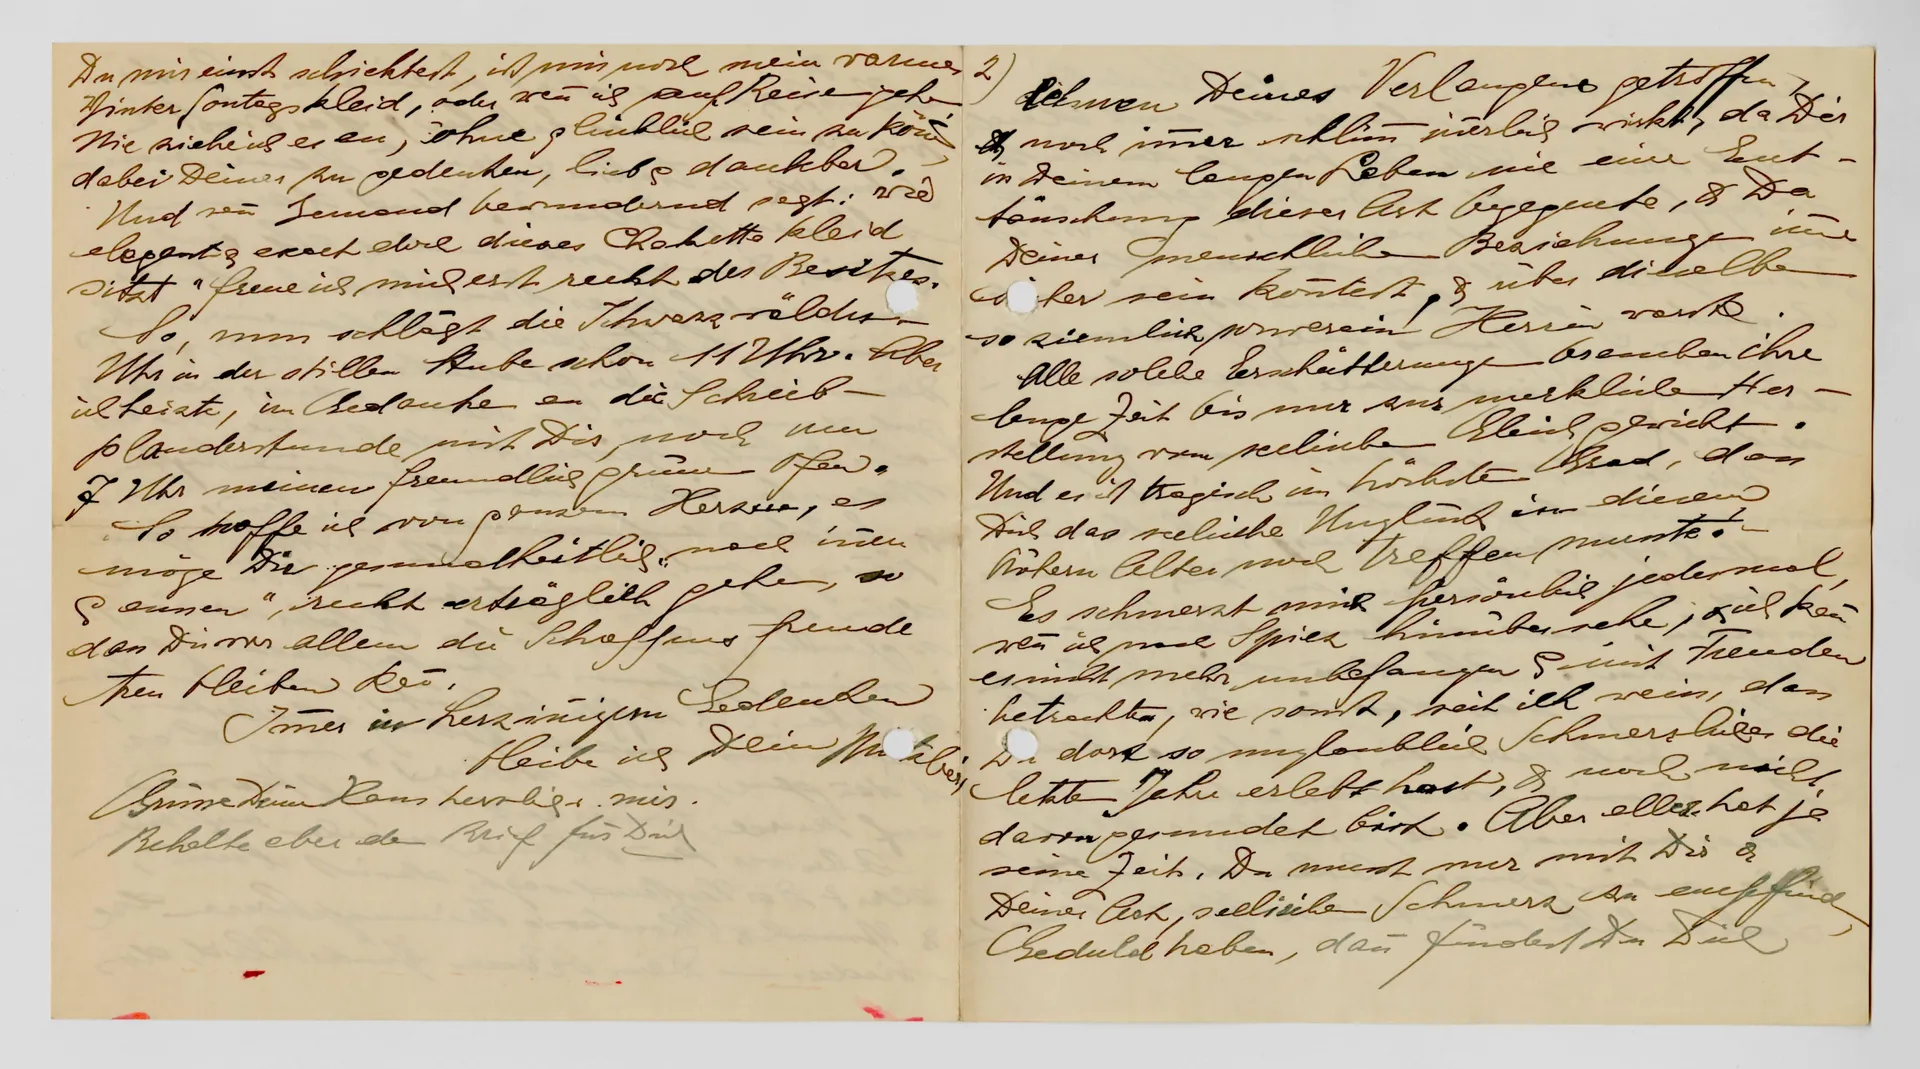 Du mir einst schicktest, ist mir noch mein warmes
Winter Sontagskleid, oder weñ ich auf Reisen gehe.
Nie ziehe ich es an, ohne glücklich sein zu köñ
dabei Deiner zu gedenken, lieb & dankbar.
Und weñ Jemand bewundernd sagt: wie
elegant & exact doch dieses Jakettkleid
sitzt" freue ich mich erst recht des Besitzes.
So, nun schlägt die Schwarzwälder
Uhr in der stillen Stube schon 11 Uhr. Aber
ich heizte, im Gedanken an die Schreib-
plauderstunde mit Dir, noch um
7 Uhr meinen freundlich grünen Ofen.
So hoffe ich von ganzem Herzen, es
möge Dir gesundheitlich noch im̃er
"', recht erträglich gehen, so
dass Du vor allem die Schaffensfreude
treu bleiben kañ.
Im̃er in herzinnigem Gedenken
bleibe ich Dein
Grüsse Deinen Hans herzlich v. mir.
Behalte aber den Brief für Dich
2)
Deines Verlangens getroffen,
& noch im̃er schlim̃ innerlich wirkt, da Dir
in Deinem langen Leben nie eine Ent-
täuschung dieser Art begegnete, & Du
Deiner menschlichen Beziehungen im̃er
sicher sein koñtest, & über dieselben
so ziemlich souverain Herrin warst.
Alle solche Erschütterungen brauchen ihre
lange Zeit bis nur zur merklichen Her-
stellung vom seelischen Gleichgewicht.
Und es ist tragisch im höchsten Grad, dass
Dich das seelische Unglück in diesem
höhern Alter noch treffen musste! -
Es schmerzt mich persönlich jedesmal,
weñ ich nach Spiez hinüber sehe, & ich kañ
es nicht mehr unbefangen & mit Freuden
betrachten, wie sonst, seit ich weiss, dass
Du dort so unglaublich Schmerzliches die
letzten Jahre erlebt hast, & noch nicht
davon gesundet bist. Aber alles hat ja
seine Zeit. Du musst nur mit Dir &
Deiner Art, seelischen Schmerz zu empfinden,
Geduld haben, dañ findest Du Dich